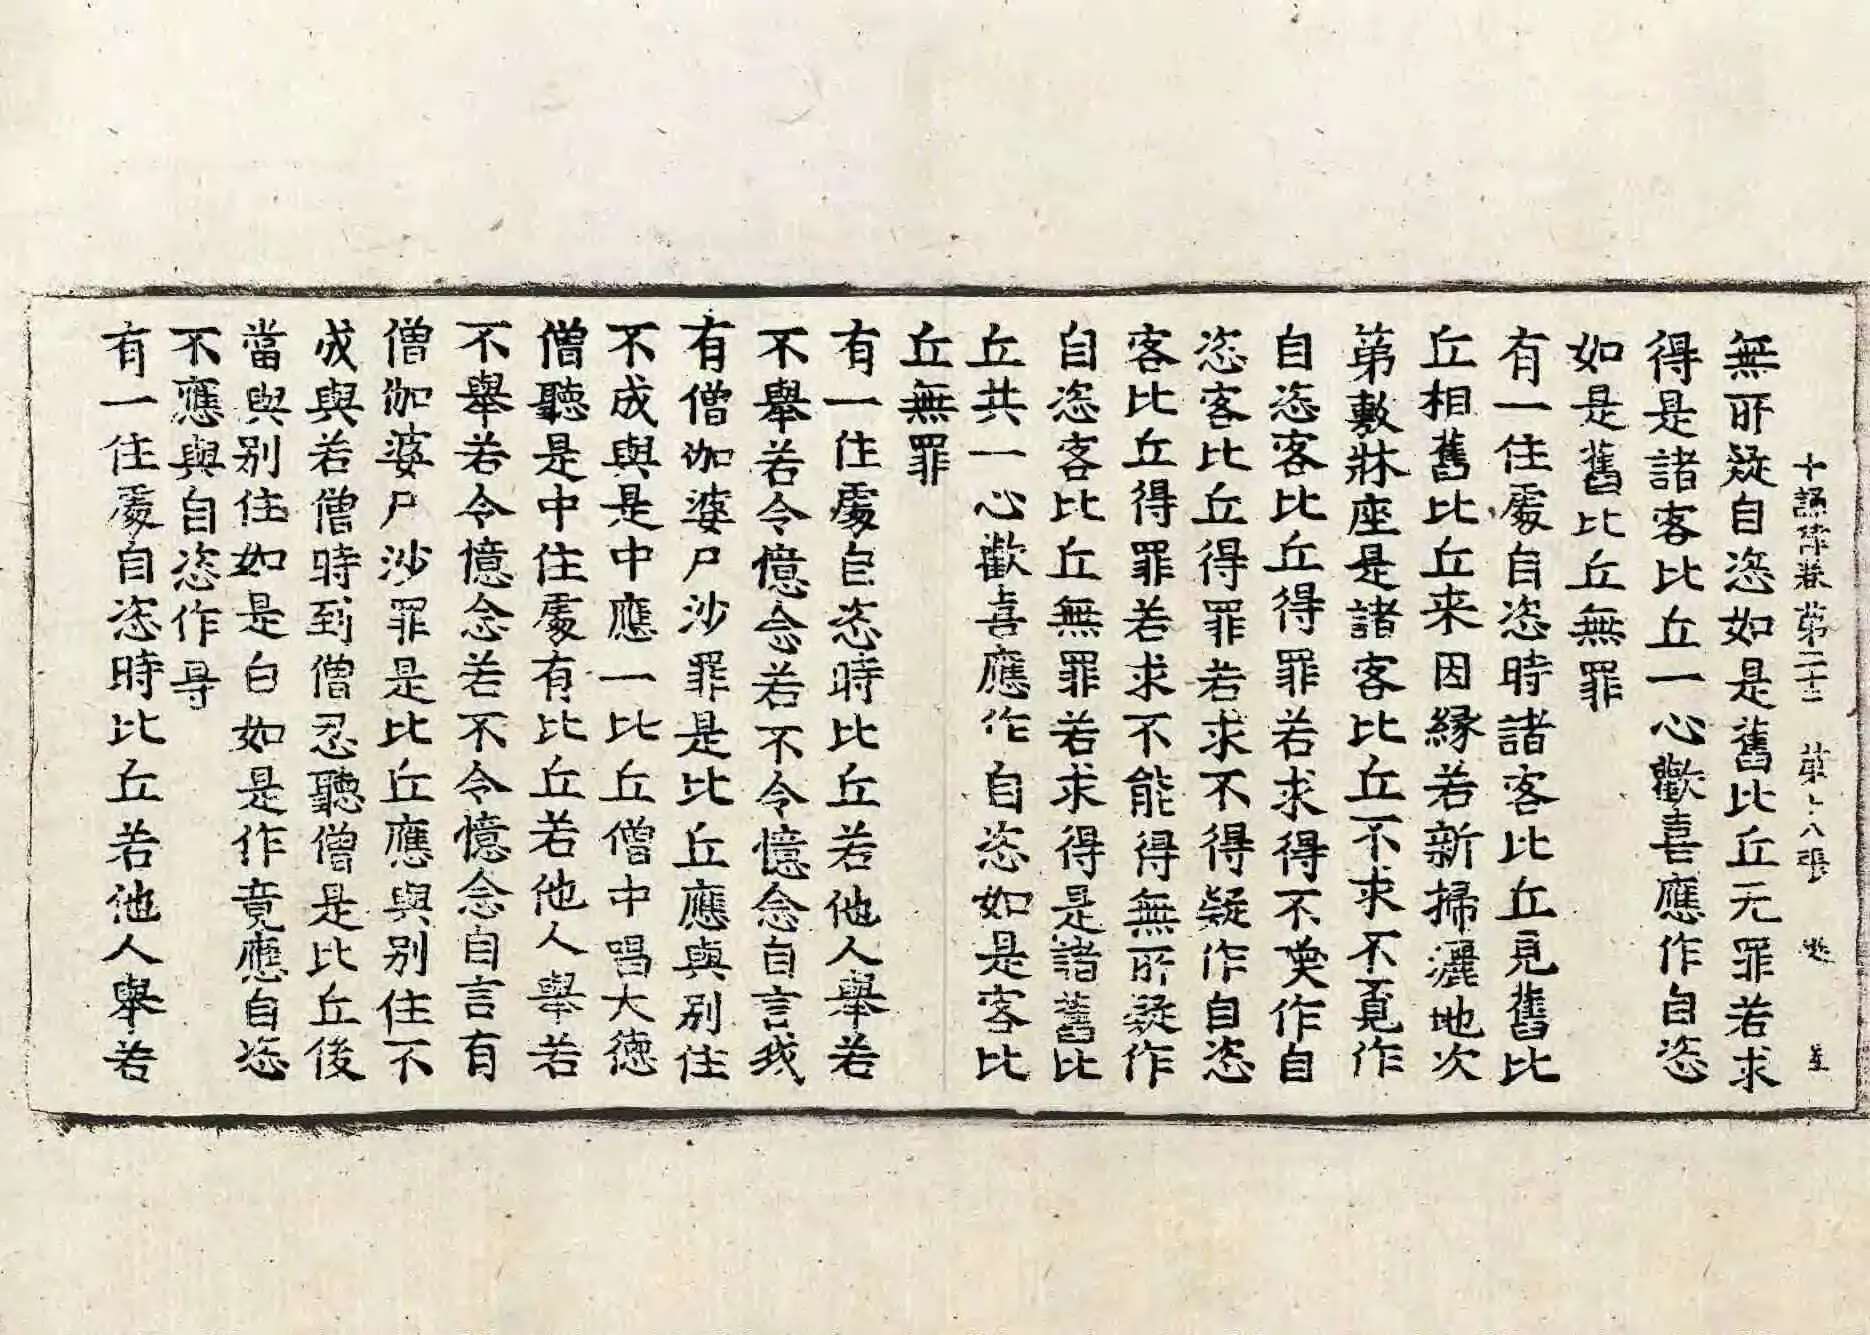 十誦律卷第二十三 第十八張
無所疑自恣如是舊比丘无罪若求
得是諸客比丘一心歡喜應作自恣
如是舊比丘無罪
有一住處自恣時諸客比丘見舊比
丘相舊比丘来因縁若新掃灑地次
第敷牀座是諸客比丘不求不覓作
自恣客比丘得罪若求得不喚作自
恣客比丘得罪若求不得疑作自恣
客比丘得罪若求不能得無所疑作
自恣客比丘無罪若求得是諸舊比
丘共一心歡喜應作自恣如是客比
丘無罪
有一住處自恣時比丘若他人舉若
不舉若令憶念若不令憶念自言我
有僧伽婆尸沙罪是比丘應與別住
不成與是中應一比丘僧中唱大德
僧聽是中住處有比丘若他人舉若
不舉若令憶念若不令憶念自言有
僧伽婆尸沙罪是比丘應與別住不
成與若僧時到僧忍聽僧是比丘後
當與別住如是白如是作竟應自恣
不應與自恣作㝵
有一住處自恣時比丘若他人舉若